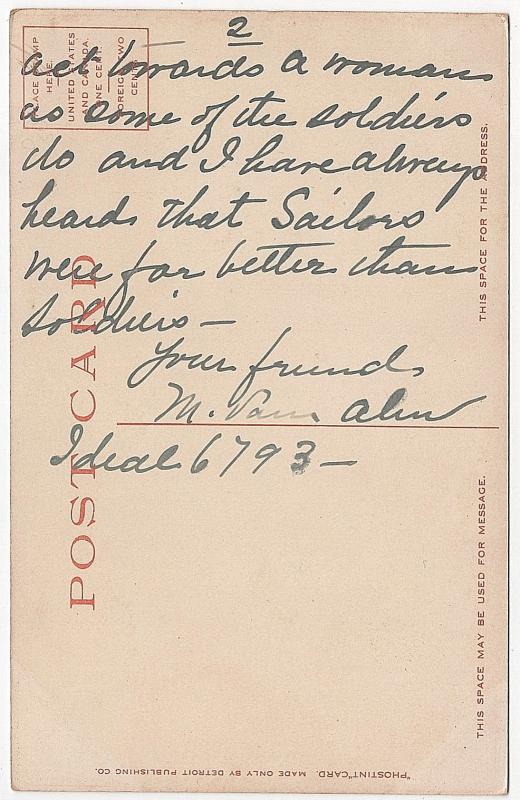 2
act towards a woman
as some of the soldiers
do and I have always
heard that Sailors
were far better than
soldiers —
Your friend
M. Van
Ideal 6793 —
PLACE STAMP
HERE.
UNITED STATES
AND CANADA.
ONE CENT.
FOREIGN, TWO
CENTS.
POST CARD
THIS SPACE FOR THE ADDRESS.
THIS SPACE MAY BE USED FOR MESSAGE.
"PHOSTINT" CARD. MADE ONLY BY DETROIT PUBLISHING CO.